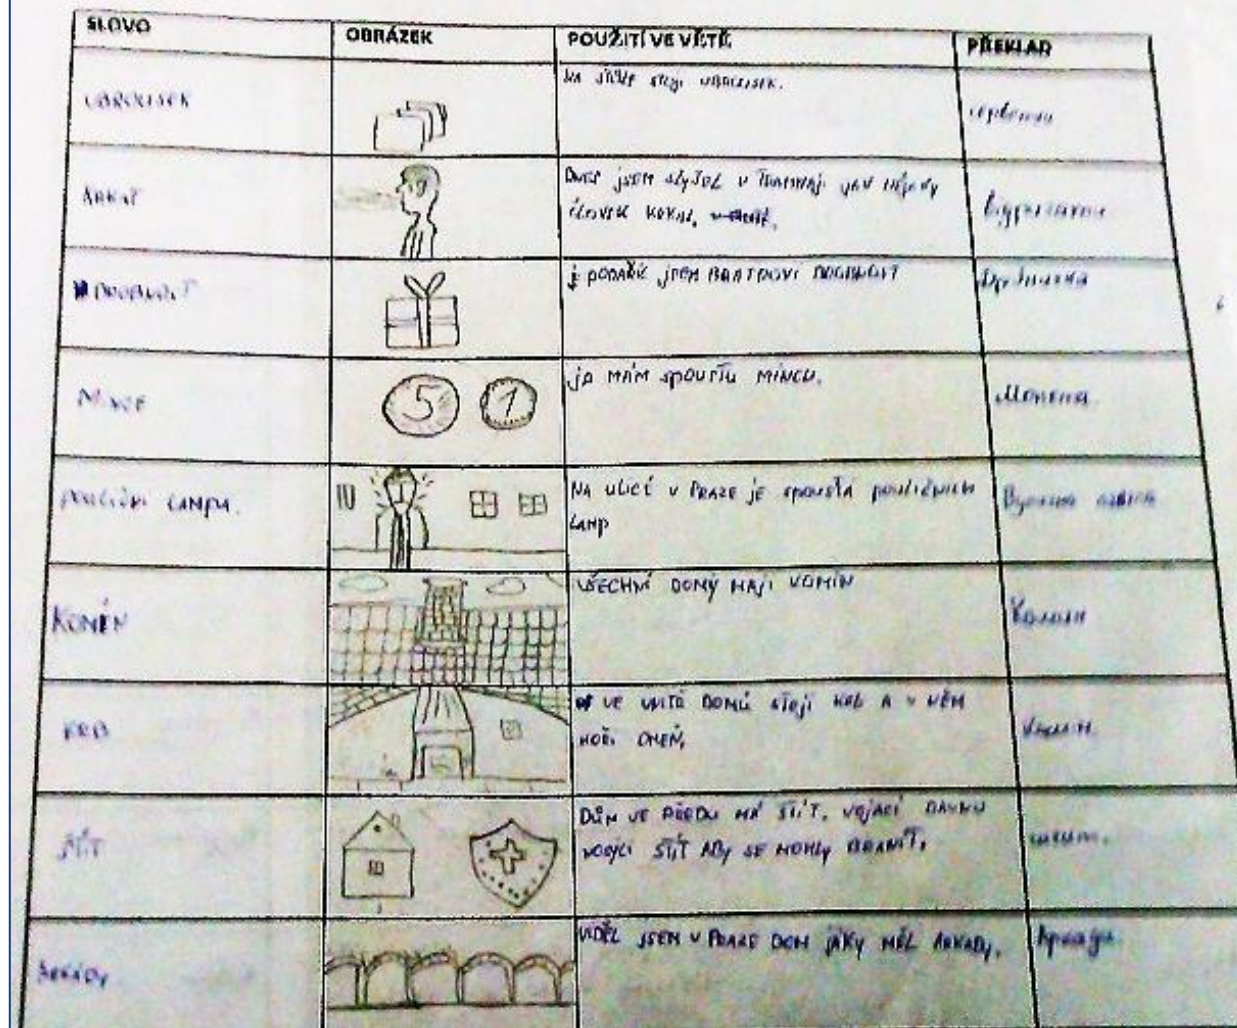 SLOVO OBRÁZEK POUŽITÍ VE VĚTĚ PŘEKLAD
UBROUSEK NA STOLE STOJI UBROUSEK.
DNES JSEM SLYŠEL V TRAMVAJI JAK NĚJAKY
ČLOVEK KRKAL.
DROBNOST JSEM BRATROVI DROBNOST
5 1
MINCE JA MÁM SPOUSTU MINCU. Монета
POULIČNI LAMPA. NA ULICÍ V PRAZE JE SPOUSTA POULIČNICH
LAMP
KOMÉN VŠECHNÍ DOMÝ MAJI KOMÍN Камин
KRB VE VNITŘ DOMÚ STOJI KRB A V NĚM Камин.
HOŘI OHEŇ,
ŠÍT DŮM VE PŘEDU MÁ ŠÍT. VOJACI DAVNU
ŠÍT ABY SE MOHLY BRANÍT.
ARKÁDY VIDĚL JSEM V PRAZE DOM JÁKY MĚL ARKADY. Аркады